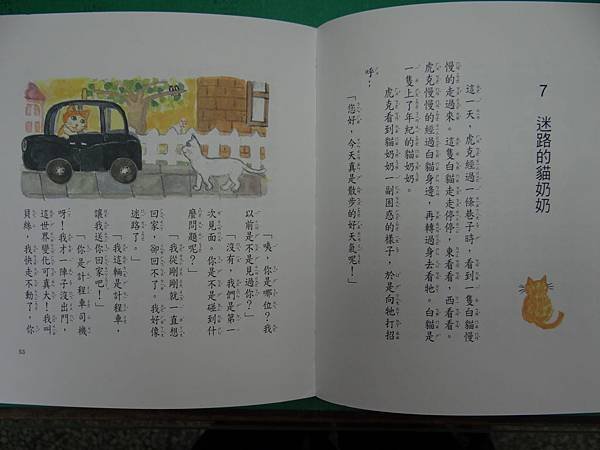 7 迷路的貓奶奶
這一天,虎克經過一條巷子時,看到一隻白貓慢
慢的走過來。這隻白貓走走停停,東看看,西看看。
虎克慢慢的經過白貓身邊,再轉過身去看牠。白貓是
一隻上了年紀的貓奶奶。
虎克看到貓奶奶一副困惑的樣子,於是向牠打招
呼:
「您好,今天真是散步的好天氣呢!」
「咦,你是哪位?我
以前是不是見過你?」
「沒有,我們是第一
次見面。你是不是碰到什
麼問題呢?」
「我從剛剛就一直想
回家,卻回不了。我好像
迷路了。」
「我這輛是計程車,
讓我送你回家吧!」
「你是計程車司機
呀!我才一陣子沒出門,
這世界變化可真大!我叫
貝絲,我快走不動了,你
53